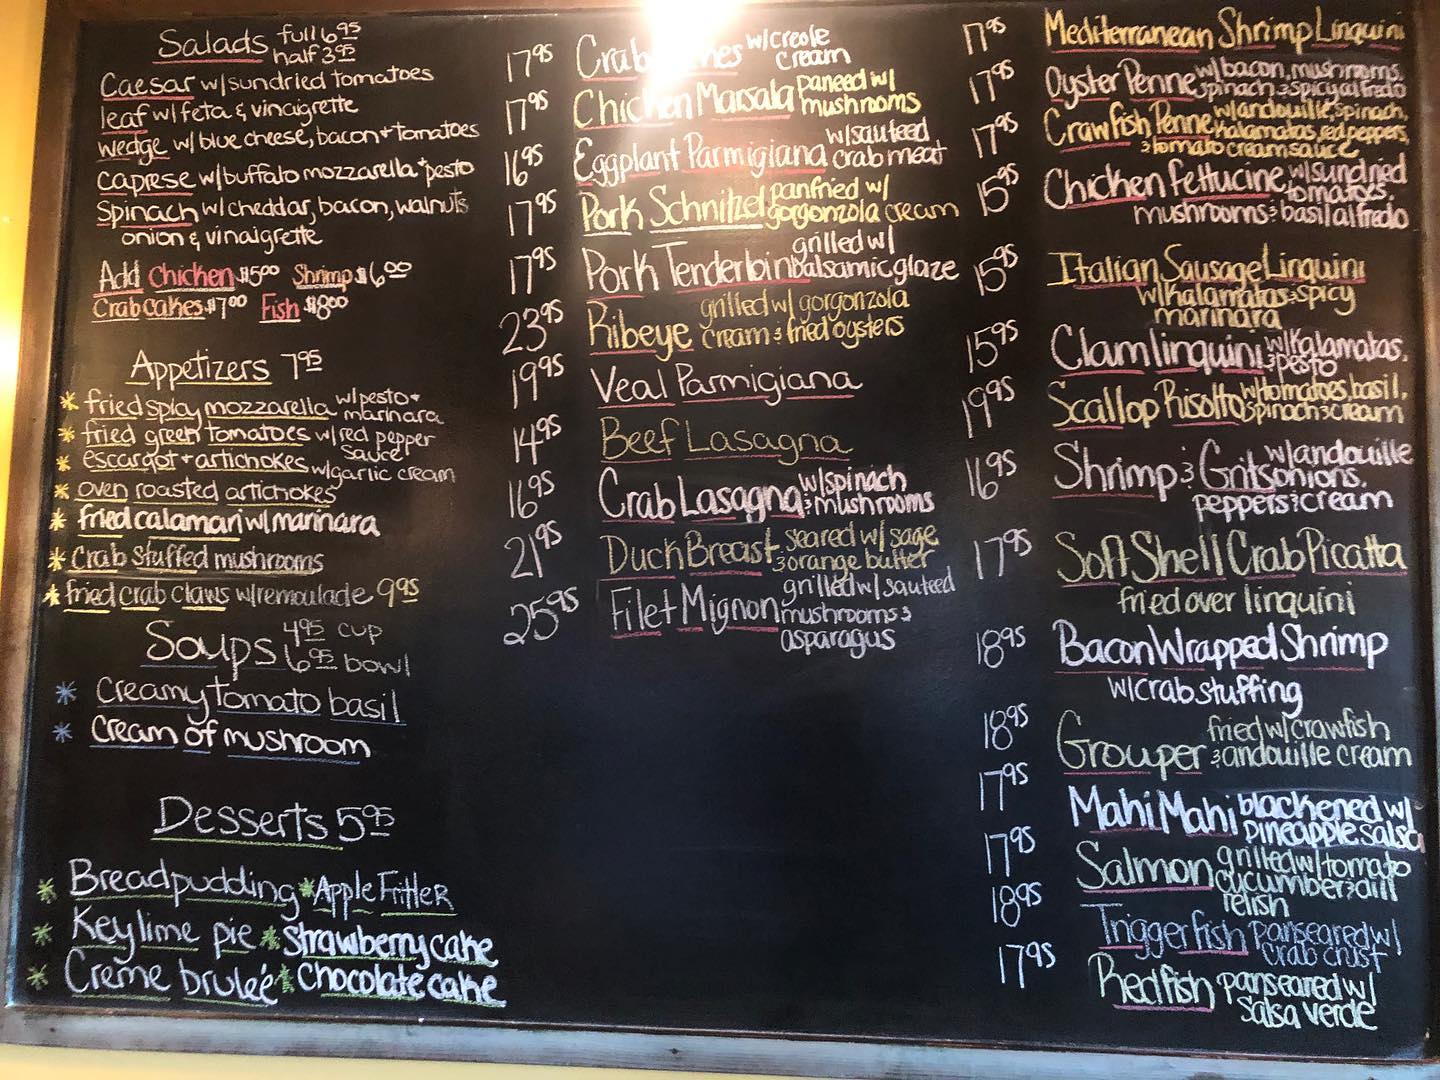 Salads full 6.95
half 3.95
Caesar w/sundried tomatoes
leaf w/feta & vinaigrette
wedge w/blue cheese, bacon + tomatoes
caprese w/buffalo mozzarella + pesto
Spinach w/cheddar, bacon, walnuts
onion & vinaigrette
Add Chicken $5.00 Shrimp $6.00
Crabcakes $7.00 Fish $8.00
Appetizers 7.95
* fried splay mozzarella w/pesto + marinara
* fried green tomatoes w/red pepper sauce
* escargot + artichokes w/garlic cream
* oven roasted artichokes
* fried calamari w/marinara
* Crab stuffed mushrooms
* fried crab claws w/remoulade 9.95
Soups 4.95 cup
6.95 bowl
* Creamy tomato basil
* Cream of mushroom
Desserts 5.95
* Breadpudding * Apple Fritter
* Key lime pie * Strawberry cake
* Creme bruleé * Chocolate cake
17.95 Crab w/creole cream
17.95 Chicken Marsala paneed w/ mushrooms
16.95 Eggplant Parmigiana w/sauteed crab meat
17.95 Pork Schnitzel panfried w/ gorgonzola cream
17.95 Pork Tenderloin grilled w/ balsamic glaze
23.95 Ribeye grilled w/ gorgonzola cream & fried oysters
19.95 Veal Parmigiana
14.95 Beef Lasagna
16.95 Crab Lasagna w/spinach & mushrooms
21.95 Duck Breast seared w/ sage & orange butter
25.95 Filet Mignon grilled w/ sauteed mushrooms & asparagus
17.95 Mediterranean Shrimp Linguini
17.95 Oyster Penne w/bacon, mushrooms, spinach & spicy alfredo
17.95 Crawfish Penne w/andouille, spinach, Kalamatas, red peppers, & tomato cream sauce
15.95 Chicken fettucine w/sundried tomatoes, mushrooms & basil alfredo
15.95 Italian Sausage Linguini
w/Kalamatas & spicy
marinara
15.95 Clam linguini w/Kalamatas, & pesto
19.95 Scallop Risotto w/tomatoes, basil, spinach & cream
16.95 Shrimp & Grits w/andouille onions, peppers & cream
17.95 Soft Shell Crab Picatta
fried over linguini
18.95 Bacon Wrapped Shrimp
w/crab stuffing
18.95 Grouper fried w/crawfish & andouille cream
17.95 Mahi Mahi blackened w/ pineapple salsa
17.95 Salmon grilled w/tomato cucumber & dill relish
18.95 Trigger fish panseared w/ crab crust
17.95 Redfish panseared w/ salsa verde